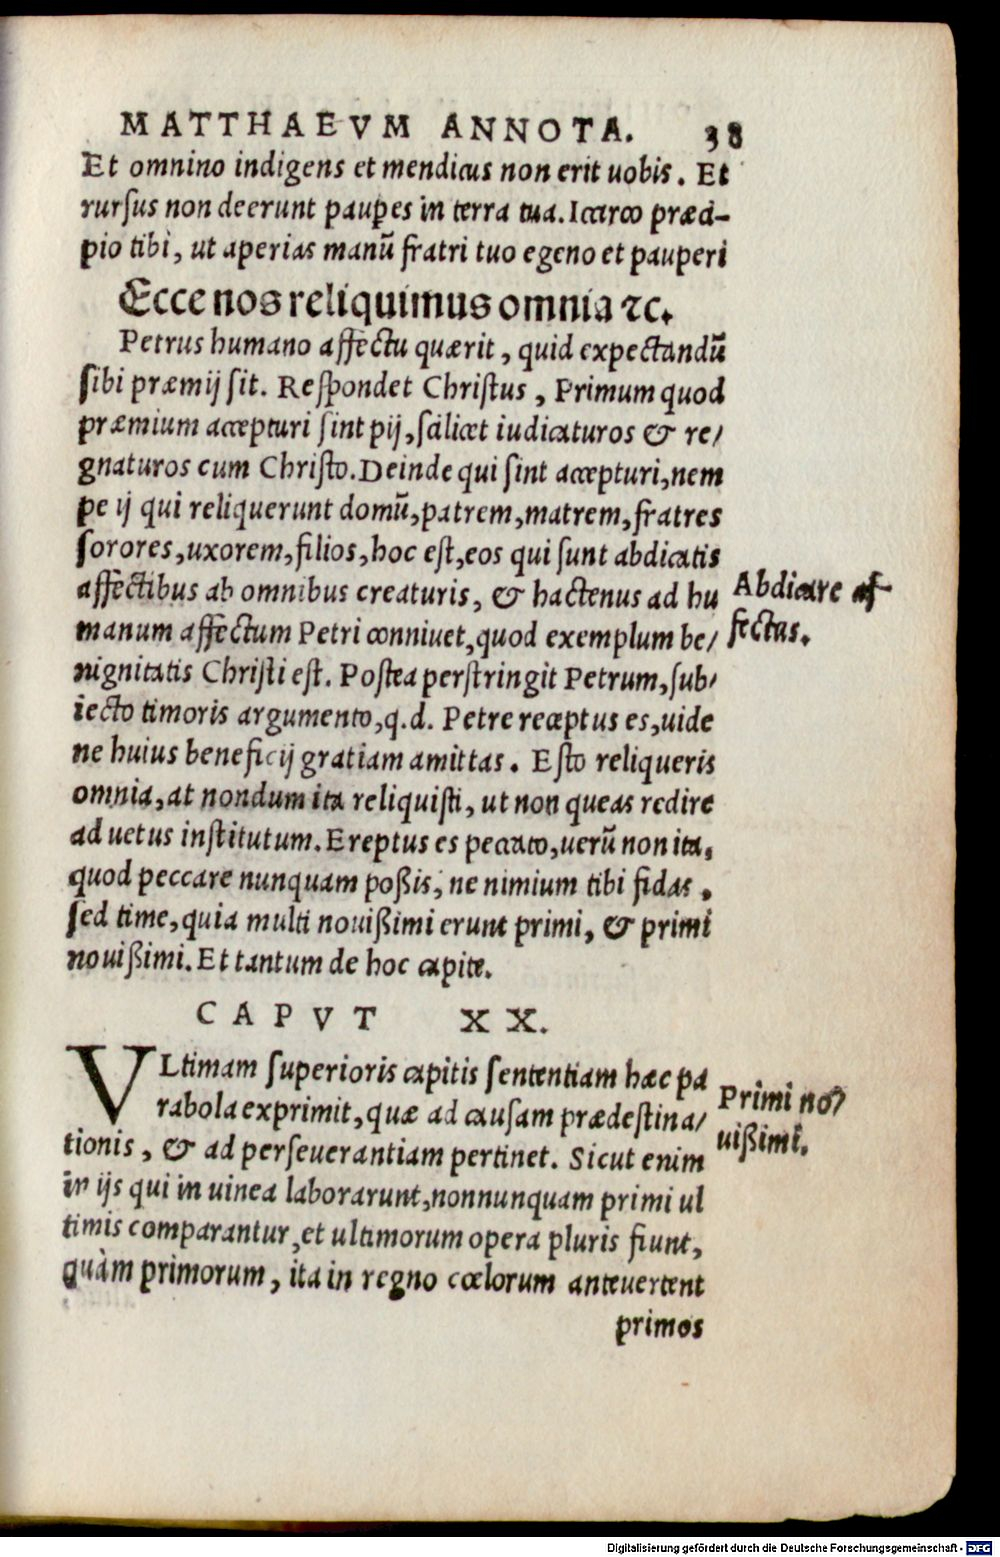 MATTHAEVM ANNOTA. 38
Et omnino indigens et mendicus non erit uobis. Et
rursus non deerunt paupes in terra tua. Icarco præci-
pio tibi, ut aperias manū fratri tuo egeno et pauperi
Ecce nos reliquimus omnia ⁊c.
Petrus humano affectu quærit, quid expectandū
sibi præmij sit. Respondet Christus, Primum quod
præmium accepturi sint pij, scilicet iudicaturos & re/
gnaturos cum Christo. Deinde qui sint accepturi, nem
pe ij qui reliquerunt domū, patrem, matrem, fratres
sorores, uxorem, filios, hoc est, eos qui sunt abdicatis
affectibus ab omnibus creaturis, & hactenus ad hu
Abdicare af-
fectus.
manum affectum Petri conniuet, quod exemplum be/
nignitatis Christi est. Postea perstringit Petrum, sub/
iecto timoris argumento, q.d. Petre receptus es, uide
ne huius beneficij gratiam amittas. Esto reliqueris
omnia, at nondum ita reliquisti, ut non queas redire
ad uetus institutum. Ereptus es peccato, uerū non ita,
quod peccare nunquam poßis, ne nimium tibi fidas,
sed time, quia multi nouißimi erunt primi, & primi
nouißimi. Et tantum de hoc capite.
CAPVT XX.
VLtimam superioris capitis sententiam hæc pa
rabola exprimit, quæ ad causam prædestina/
Primi no/
uißimi.
tionis, & ad perseuerantiam pertinet. Sicut enim
in ijs qui in uinea laborarunt, nonnunquam primi ul
timis comparantur, et ultimorum opera pluris fiunt,
quàm primorum, ita in regno cœlorum anteuertent
primos
Digitalisierung gefördert durch die Deutsche Forschungsgemeinschaft - DFG